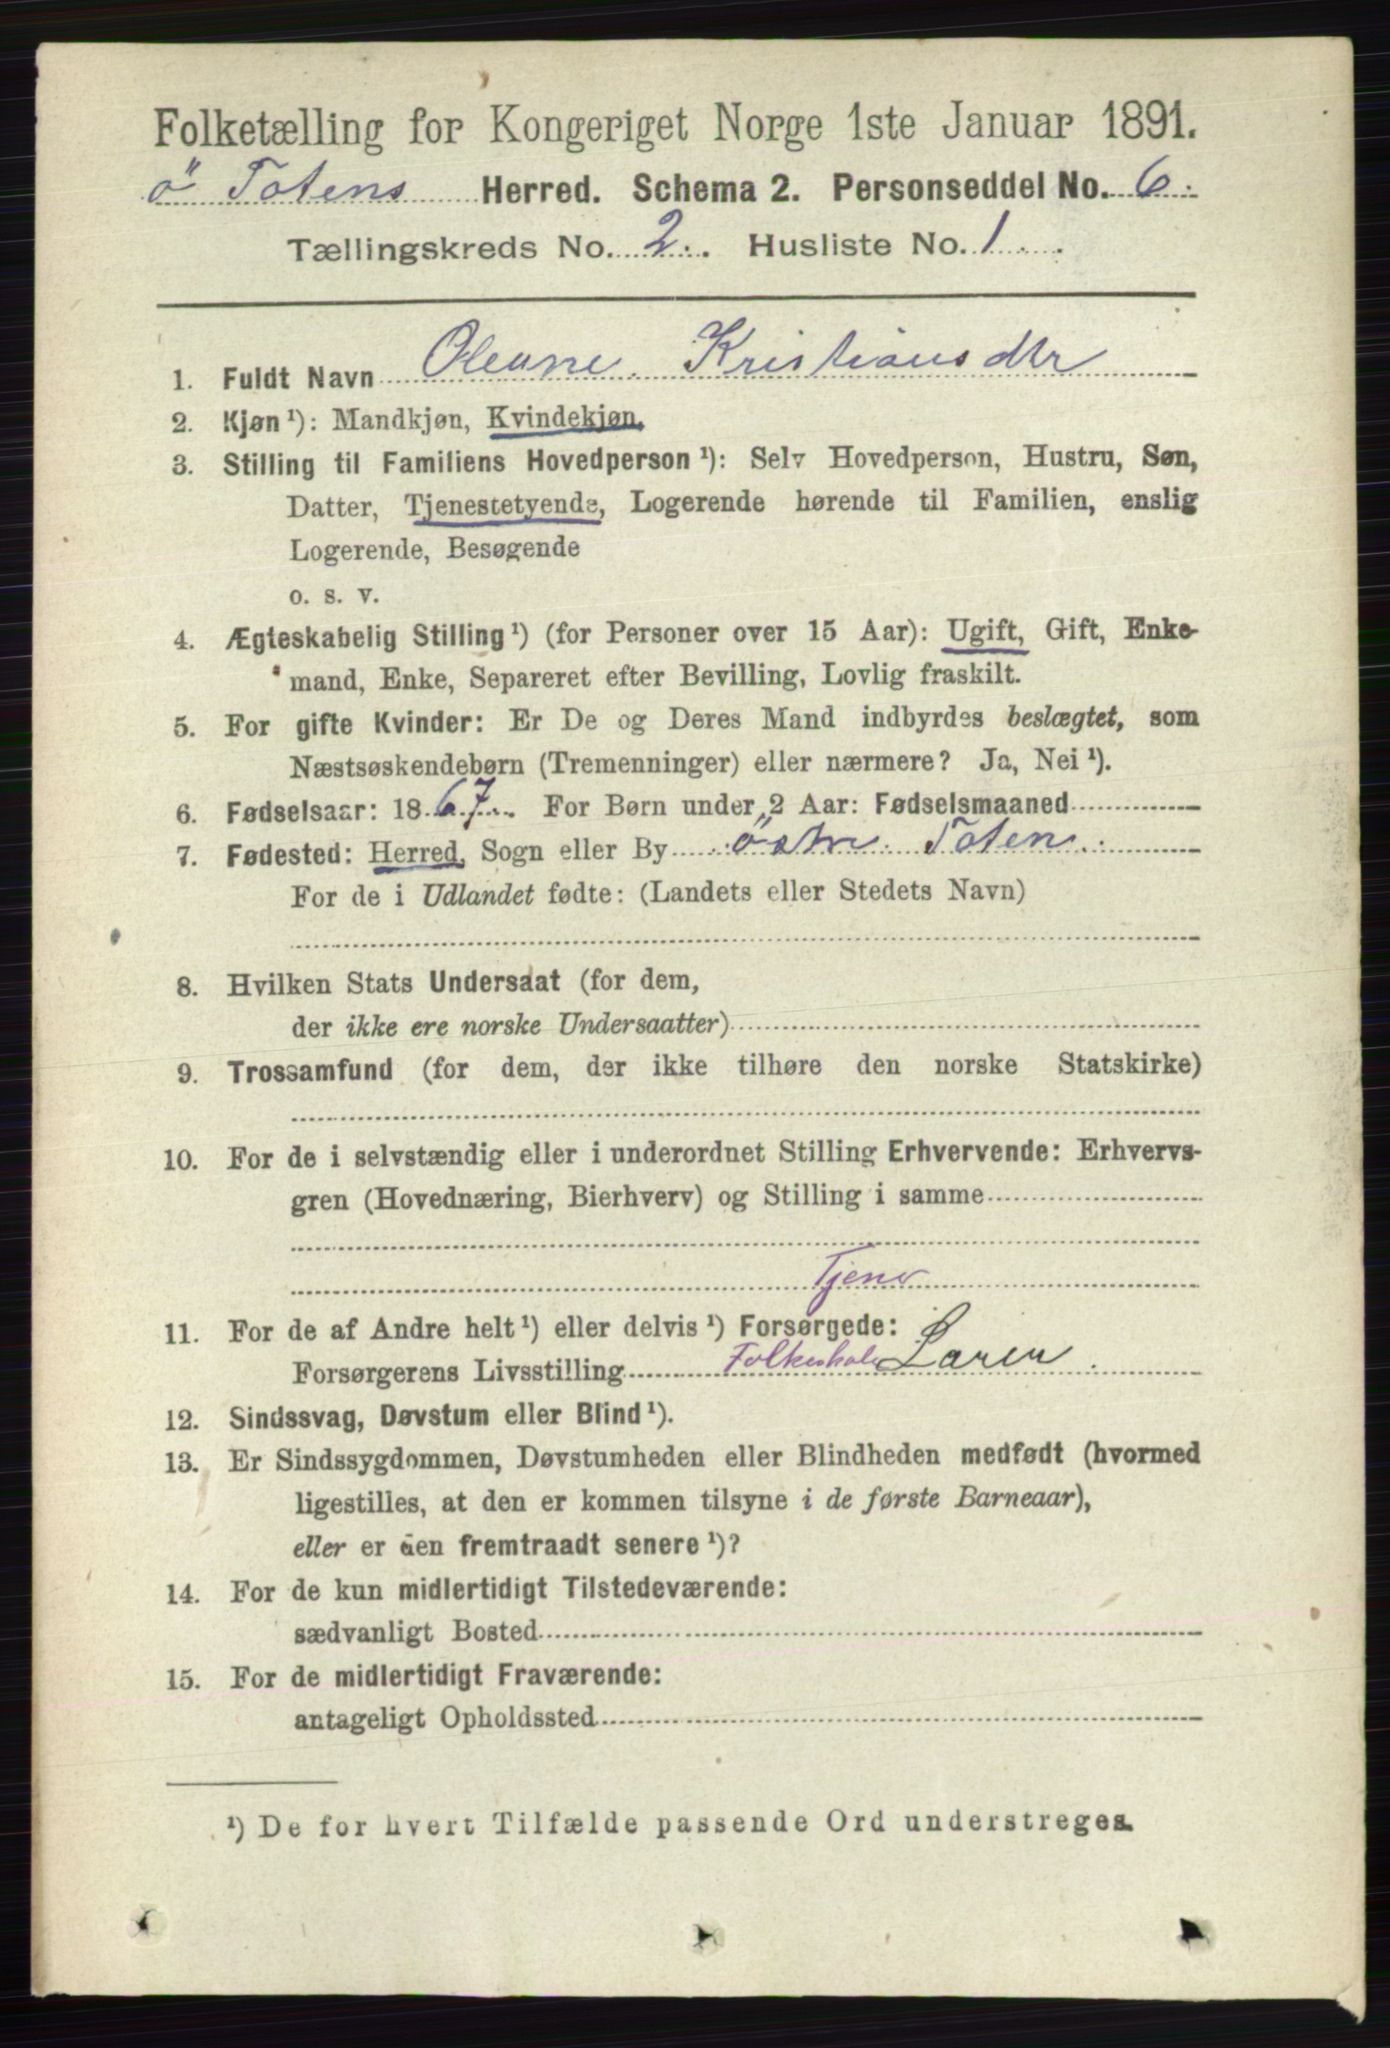 Folketælling for Kongeriget Norge 1ste Januar 1891.
ö Totens Herred. Schema 2. Personseddel No. 6.
Tællingskreds No. 2. Husliste No. 1.
1. Fuldt Navn Oleane Kristiansdtr
2. Kjøn¹): Mandkjøn, Kvindekjøn.
3. Stilling til Familiens Hovedperson¹): Selv Hovedperson, Hustru, Søn,
Datter, Tjenestetyende, Logerende hørende til Familien, enslig
Logerende, Besøgende
o. s. v.
4. Ægteskabelig Stilling¹) (for Personer over 15 Aar): Ugift, Gift, Enke-
mand, Enke, Separeret efter Bevilling, Lovlig fraskilt.
5. For gifte Kvinder: Er De og Deres Mand indbyrdes beslægtet, som
Næstsøskendebørn (Tremenninger) eller nærmere? Ja, Nei¹).
6. Fødselsaar: 1867. For Børn under 2 Aar: Fødselsmaaned
7. Fødested: Herred, Sogn eller By östre Toten.
For de i Udlandet fødte: (Landets eller Stedets Navn)
8. Hvilken Stats Undersaat (for dem,
der ikke ere norske Undersaatter)
9. Trossamfund (for dem, der ikke tilhøre den norske Statskirke)
10. For de i selvstændig eller i underordnet Stilling Erhvervende: Erhvervs-
gren (Hovednæring, Bierhverv) og Stilling i samme
Tjener
11. For de af Andre helt¹) eller delvis¹) Forsørgede:
Forsørgerens Livsstilling Folkeskole Lærer.
12. Sindssvag, Døvstum eller Blind¹).
13. Er Sindssygdommen, Døvstumheden eller Blindheden medfødt (hvormed
ligestilles, at den er kommen tilsyne i de første Barneaar),
eller er den fremtraadt senere¹)?
14. For de kun midlertidigt Tilstedeværende:
sædvanligt Bosted
15. For de midlertidigt Fraværende:
antageligt Opholdssted
¹) De for hvert Tilfælde passende Ord understreges.